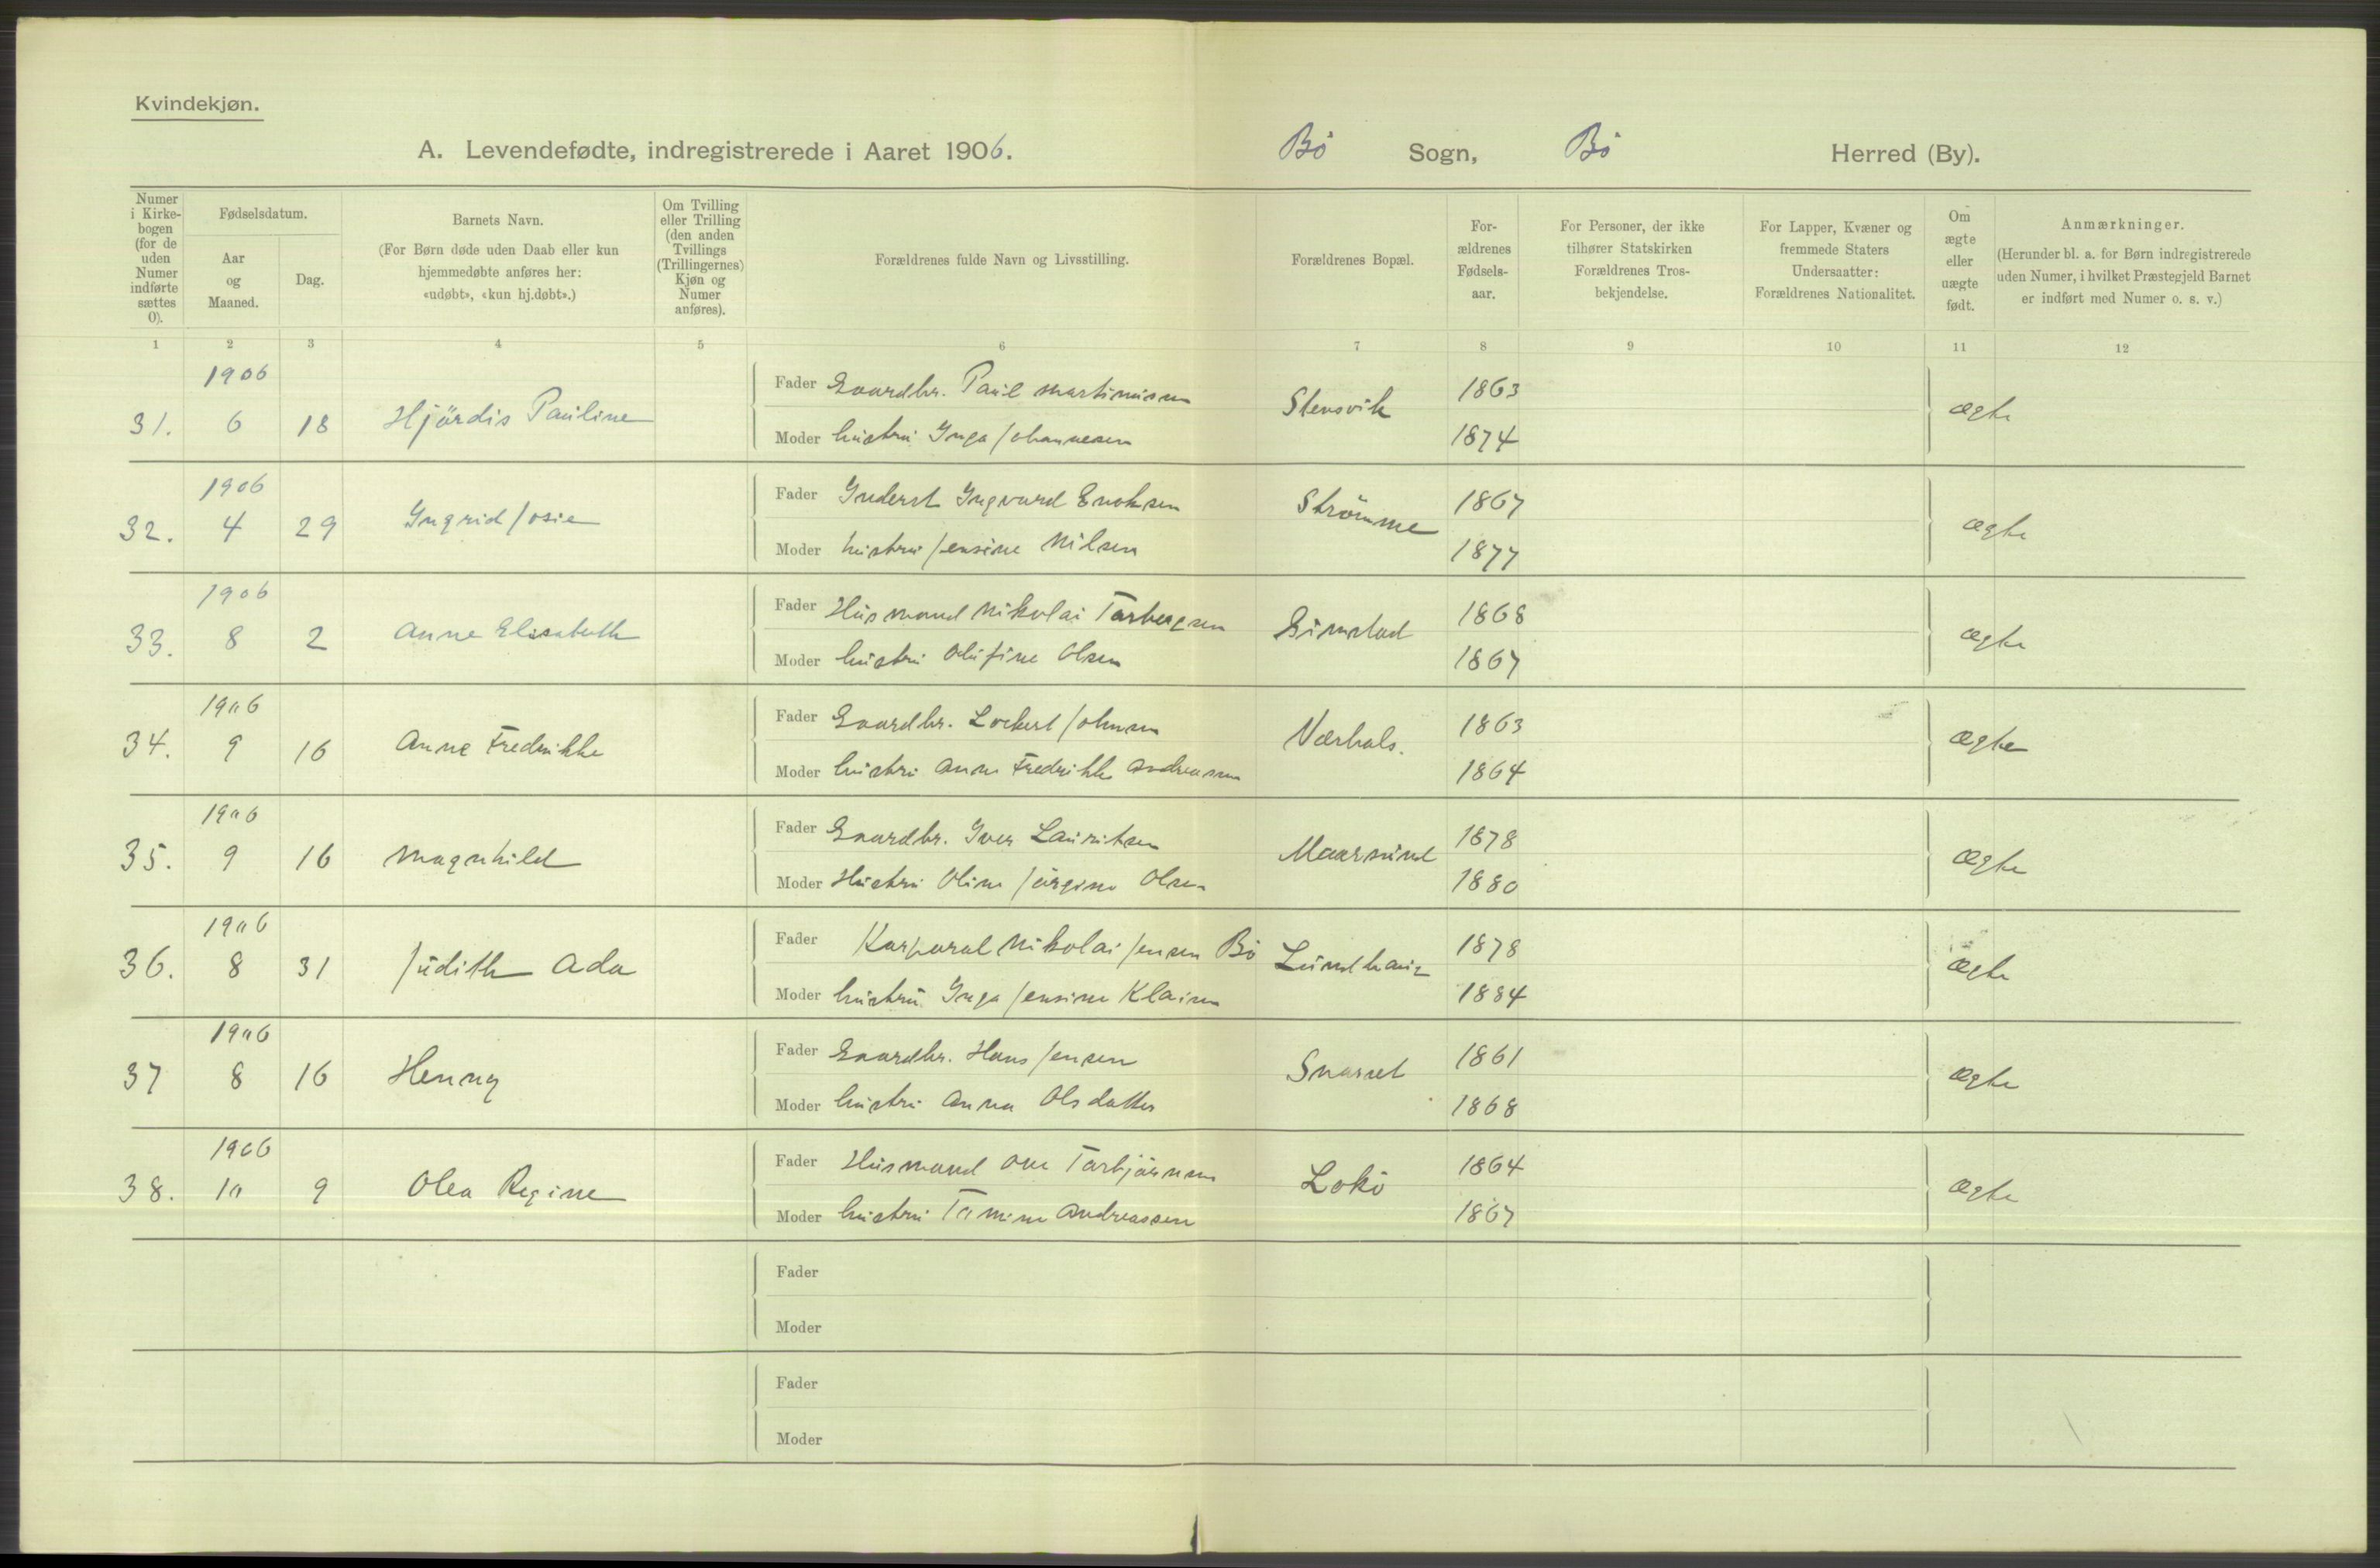 Kvindekjøn.
A. Levendefødte, indregistrerede i Aaret 1906.
Bö Sogn, Bö Herred (By).
Numer i Kirkebogen (for de uden Numer indførte sættes 0).
Fødselsdatum.
Aar og Maaned.
Dag.
Barnets Navn.
(For Børn døde uden Daab eller kun hjemmedøbte anføres her: «udøbt», «kun hj.døbt».)
Om Tvilling eller Trilling (den anden Tvillings (Trillingernes) Kjøn og Numer anføres).
Forældrenes fulde Navn og Livsstilling.
Forældrenes Bopæl.
For-ældrenes Fødsels-aar.
For Personer, der ikke tilhører Statskirken Forældrenes Tros-bekjendelse.
For Lapper, Kvæner og fremmede Staters Undersaatter: Forældrenes Nationalitet.
Om ægte eller uægte født.
Anmærkninger.
(Herunder bl. a. for Børn indregistrerede uden Numer, i hvilket Præstegjeld Barnet er indført med Numer o. s. v.)
1 2 3 4 5 6 7 8 9 10 11 12
1906
31. 6 18 Hjördis Pauline
Fader Gaardbr. Paul Martinussen Stensvik 1863 ægte
Moder hustru Inga Johannesen 1874
1906
32. 4 29 Ingrid Josie
Fader Inderst Ingvard Enoksen Strömme 1867 ægte
Moder hustru Jensine Nilsen 1877
1906
33. 8 2 Anne Elisabeth
Fader Husmand Nikolai Torbergsen Gimstad 1868 ægte
Moder hustru Olufine Olsen 1867
1906
34. 9 16 Anne Fredrikke
Fader Gaardbr. Lockert Johnsen Værhals. 1863 ægte
Moder hustru Anne Fredrikke Andreassen 1864
1906
35. 9 16 Magnhild
Fader Gaardbr. Iver Lauritsen Maarsund 1878 ægte
Moder Hustru Oline Jörgine Olsen 1880
1906
36. 8 31 Judith Ada
Fader Korporal Nikolai Jensen Bö Lundhaug 1878 ægte
Moder hustru Inga Jensine 1884
1906
37 8 16 Henny
Fader Gaardbr. Hans Jensen Snarset 1861 ægte
Moder hustru Anna Olsdatter 1868
1906
38. 10 9 Olea Regine
Fader Husmand Ove Torbjörnsen Lokö 1864 ægte
Moder hustru Tomine Andreassen 1867
Fader
Moder
Fader
Moder